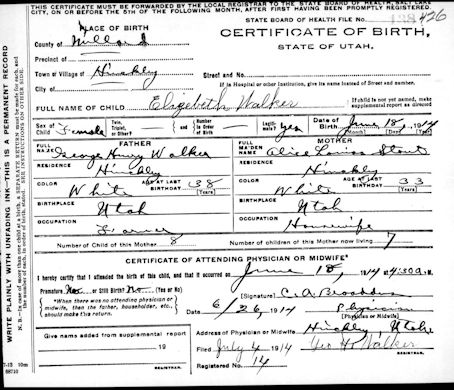 THIS CERTIFICATE MUST BE FORWARDED BY THE LOCAL REGISTRAR TO THE STATE BOARD OF HEALTH, SALT LAKE
CITY, ON OR BEFORE THE 5TH OF THE FOLLOWING MONTH, AFTER FIRST HAVING BEEN PROMPTLY REGISTERED.
STATE BOARD OF HEALTH FILE No. 426
PLACE OF BIRTH
CERTIFICATE OF BIRTH,
STATE OF UTAH.
County of Millard
Precinct of
Town or Village of Hinckley Street and No.
City of If in Hospital or other Institution, give its name instead of Street and number.
FULL NAME OF CHILD Elizebeth Walker If child is not yet named, make supplemental report as directed
Sex of Child Female Twin, Triplet, or Other? and Number in Order of Birth Legiti-mate? Yes Date of Birth June 18, 1914
(Month) (Day) (Year)
FATHER MOTHER
FULL NAME George Henry Walker FULL MAIDEN NAME Alice Louisa Stout
RESIDENCE Hinckley RESIDENCE Hinckley
COLOR White AGE AT LAST BIRTHDAY 38 (Years) COLOR White AGE AT LAST BIRTHDAY 33 (Years)
BIRTHPLACE Utah BIRTHPLACE Utah
OCCUPATION Farmer OCCUPATION Housewife
Number of Child of this Mother 8 Number of children, of this Mother, now living 7
CERTIFICATE OF ATTENDING PHYSICIAN OR MIDWIFE*
I hereby certify that I attended the birth of this child, and that it occurred on June 18, 1914 at 4:30 a. M.
Premature No or Still Birth? No (Yes or No)
*When there was no attending physician or midwife, then the father, householder, etc., should make this return.
(Signature) C. A. Broaddus
Date 6/26, 1914 Physician
(Physician or Midwife)
Address of Physician or Midwife Hinckley, Utah
Give name added from supplemental report
19
REGISTRAR.
Filed July 4 1914 Geo H. Walker
Registered No. 14 REGISTRAR.
WRITE PLAINLY WITH UNFADING INK—THIS IS A PERMANENT RECORD
N. B.—In case of more than one child at a birth, a SEPARATE RETURN must be made for each, and the number of each, in order of birth, stated. SEE INSTRUCTIONS ON OTHER SIDE.
7-13 10m
68710